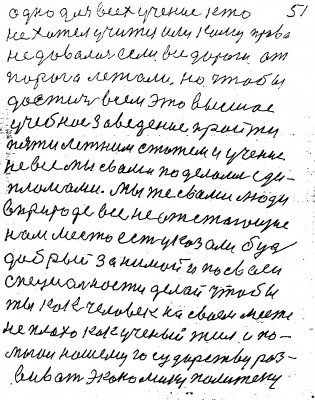 одно для всех учение кто 51
не хотел учится или кому права
не довался если все дороги от
порога летали. но чтобы
достич всем это высшое
учебное заведение пройти
пяти летним стажем и учение
не все мы с вами поделался ди-
пломами. мы же с вами люди
в природе все не отстающие
нам место есть указали будь
добрый занимой и по своей
специалности делай чтобы
ты как человек на своем месте
не плохо как ученый жил и по-
могои нашему государству раз-
виват экономику политеку